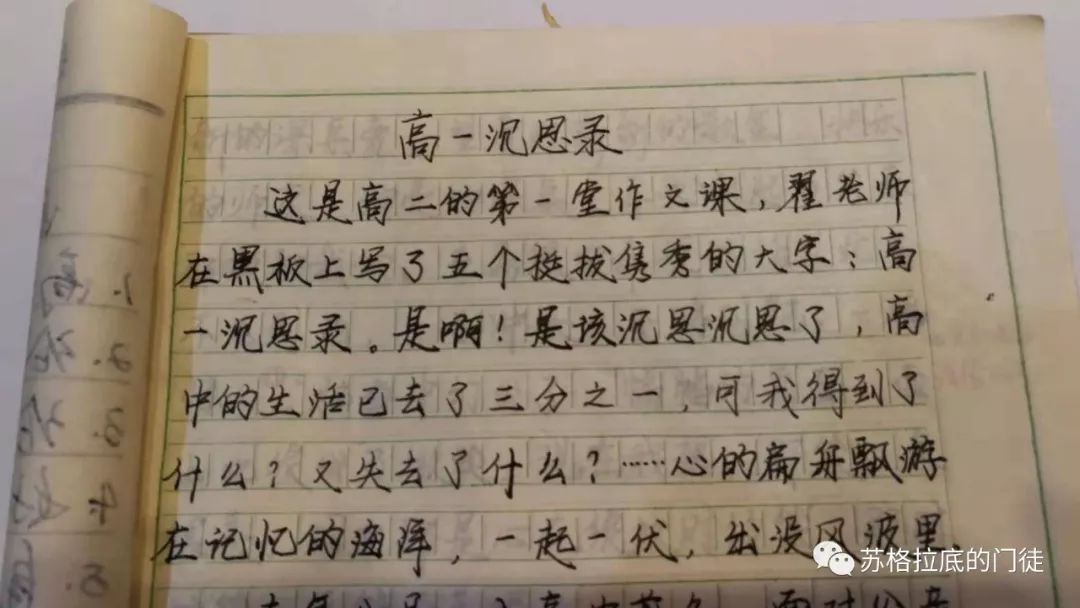 高一沉思录
这是高二的第一堂作文课,翟老师
在黑板上写了五个挺拔隽秀的大字:高
一沉思录。是啊!是该沉思沉思了,高
中的生活已去了三分之一,可我得到了
什么?又失去了什么?……心的扁舟飘游
在记忆的海洋,一起一伏,出没风波里.
苏格拉底的门徒